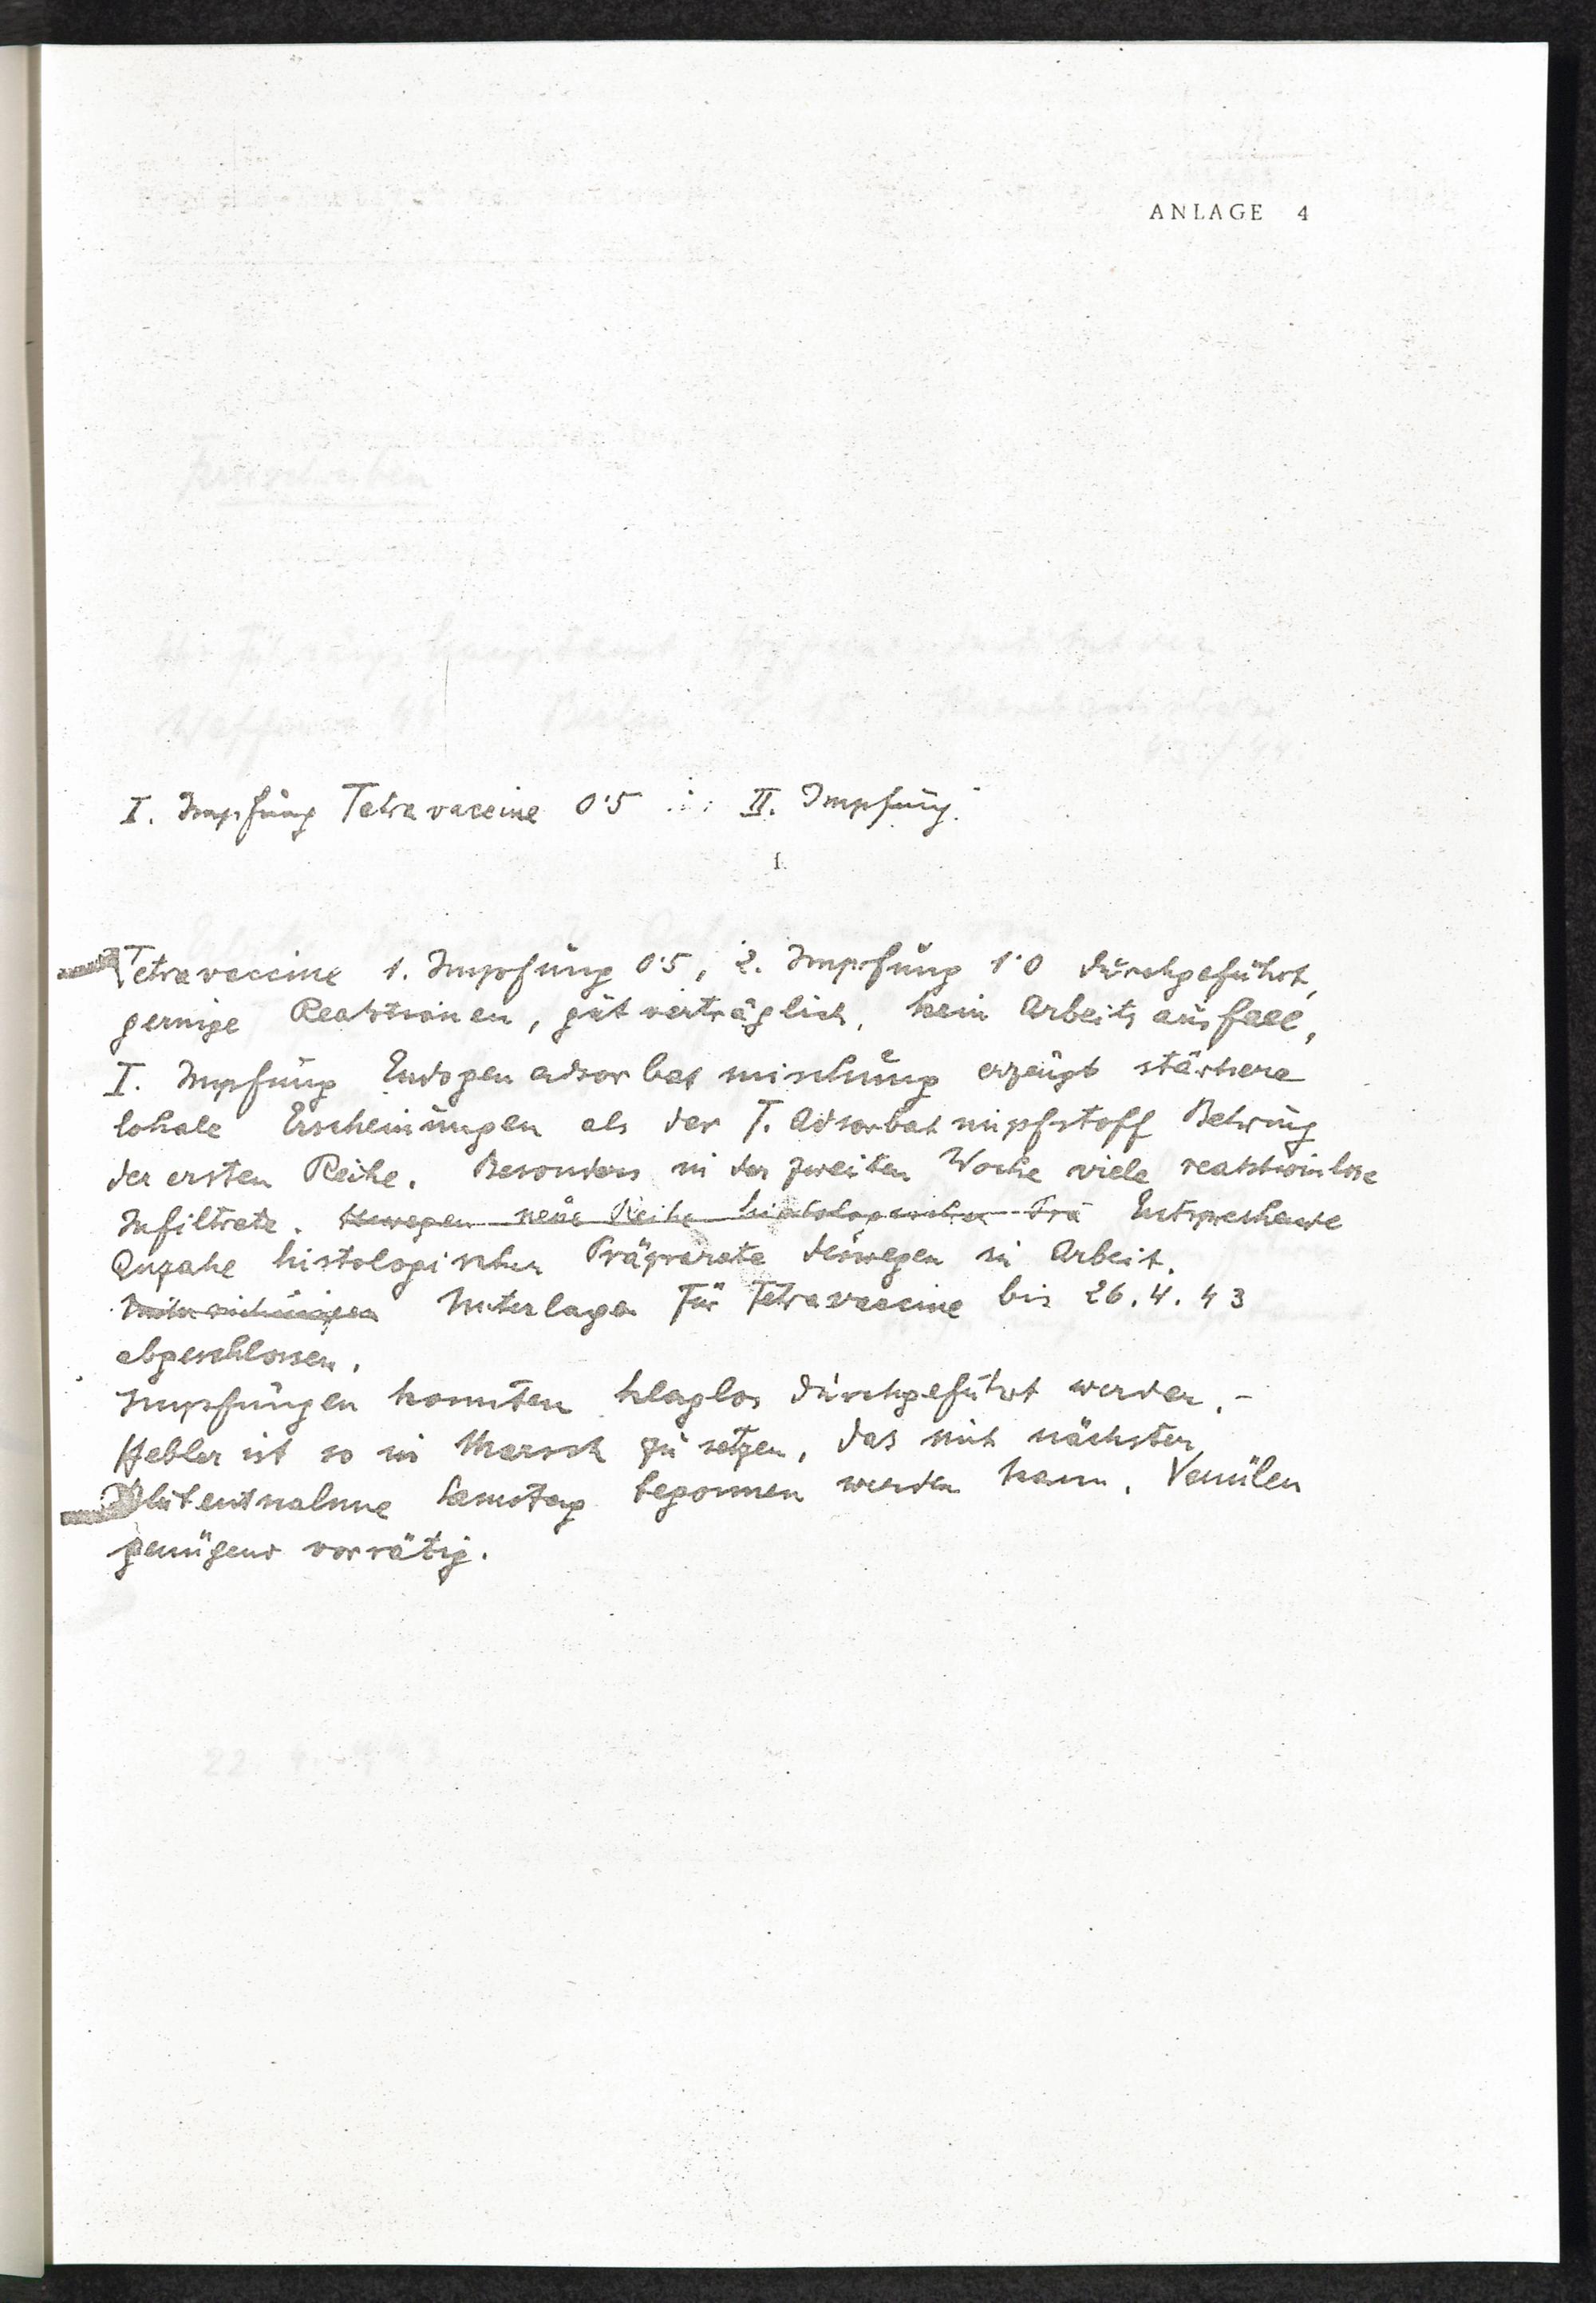 ANLAGE 4
I. Impfung Tetravaccine 0'5 II. Impfung.
Tetravaccine 1. Impfung 0'5, 2. Impfung 1'0 durchgeführt,
geringe Reaktionen, gut verträglich, kein Arbeitsausfall,
I. Impfung Endogenadsorbatmischung erzeugt stärkere
lokale Erscheinungen als der T. Adsorbatimpfstoff Behring
der ersten Reihe. Besonders in der zweiten Woche viele reaktionslose
Infiltrate. neue Reihe histologischer Prä Entsprechende
Anzahl histologischer Präparate deswegen in Arbeit.
Unterlagen für Tetravaccine bis 26.4.43
abgeschlossen.
Impfungen konnten klaglos durchgeführt werden. -
Hebler ist so in Marsch zu setzen, das mit nächster
Blutentnahme Samstag begonnen werden kann. Venülen
genügend vorrätig.